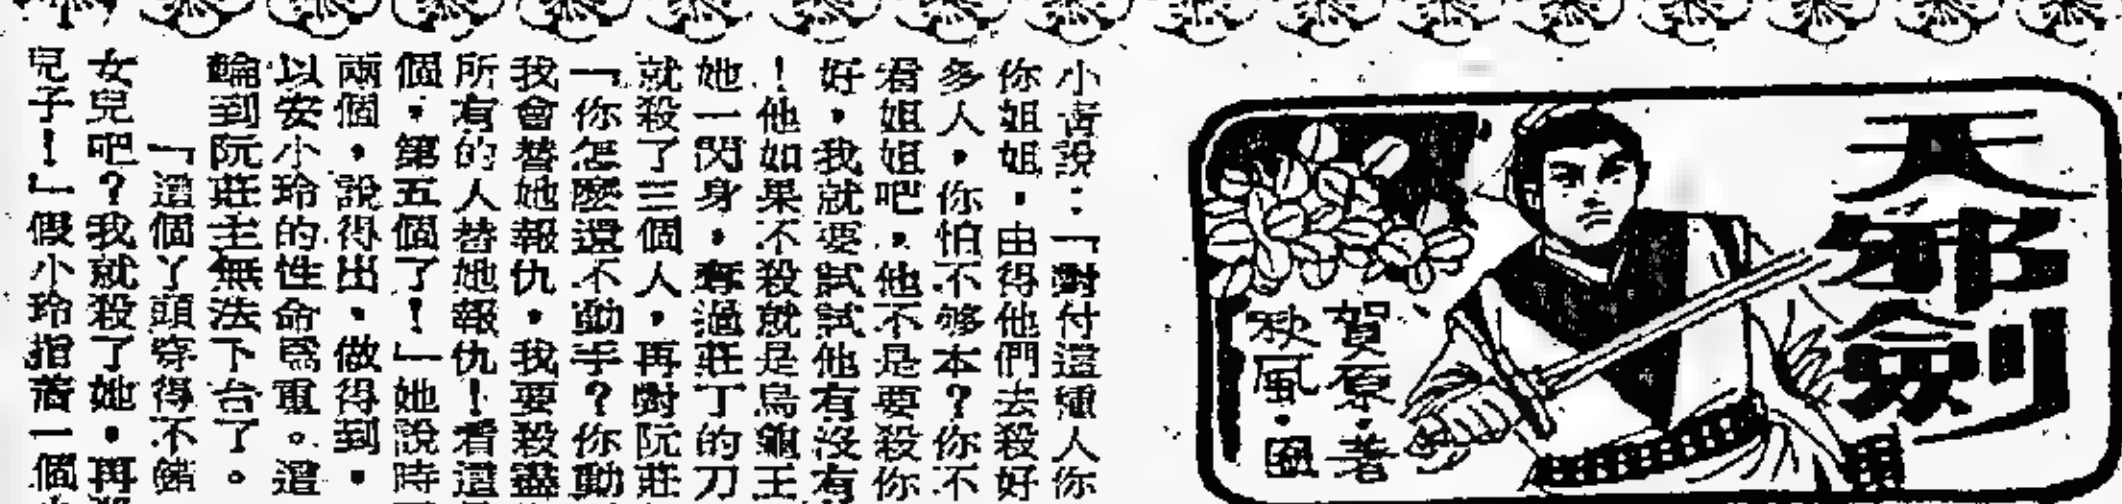 天邪劍
賀原·著
秋風·圖
小青說：「對付這種人你
你姐姐，由得他們去殺好
多人，你怕不够本？你不
君姐姐吧，他不是要殺你
好，我就要試試他有沒有
！他如果不殺就是烏龜王
她一閃身，奪過莊丁的刀
就殺了三個人，再對阮莊
「你怎麼還不動手？你動
我會替她報仇，我要殺盡
所有的人替她報仇！看這
個，第五個了！」她說時
兩個，說得出，做得到，
以安小玲的性命爲重。這
輪到阮莊主無法下台了。
「這個丫頭穿得不錯
女兒吧？我就殺了她，再
兒子！」假小玲指着一個